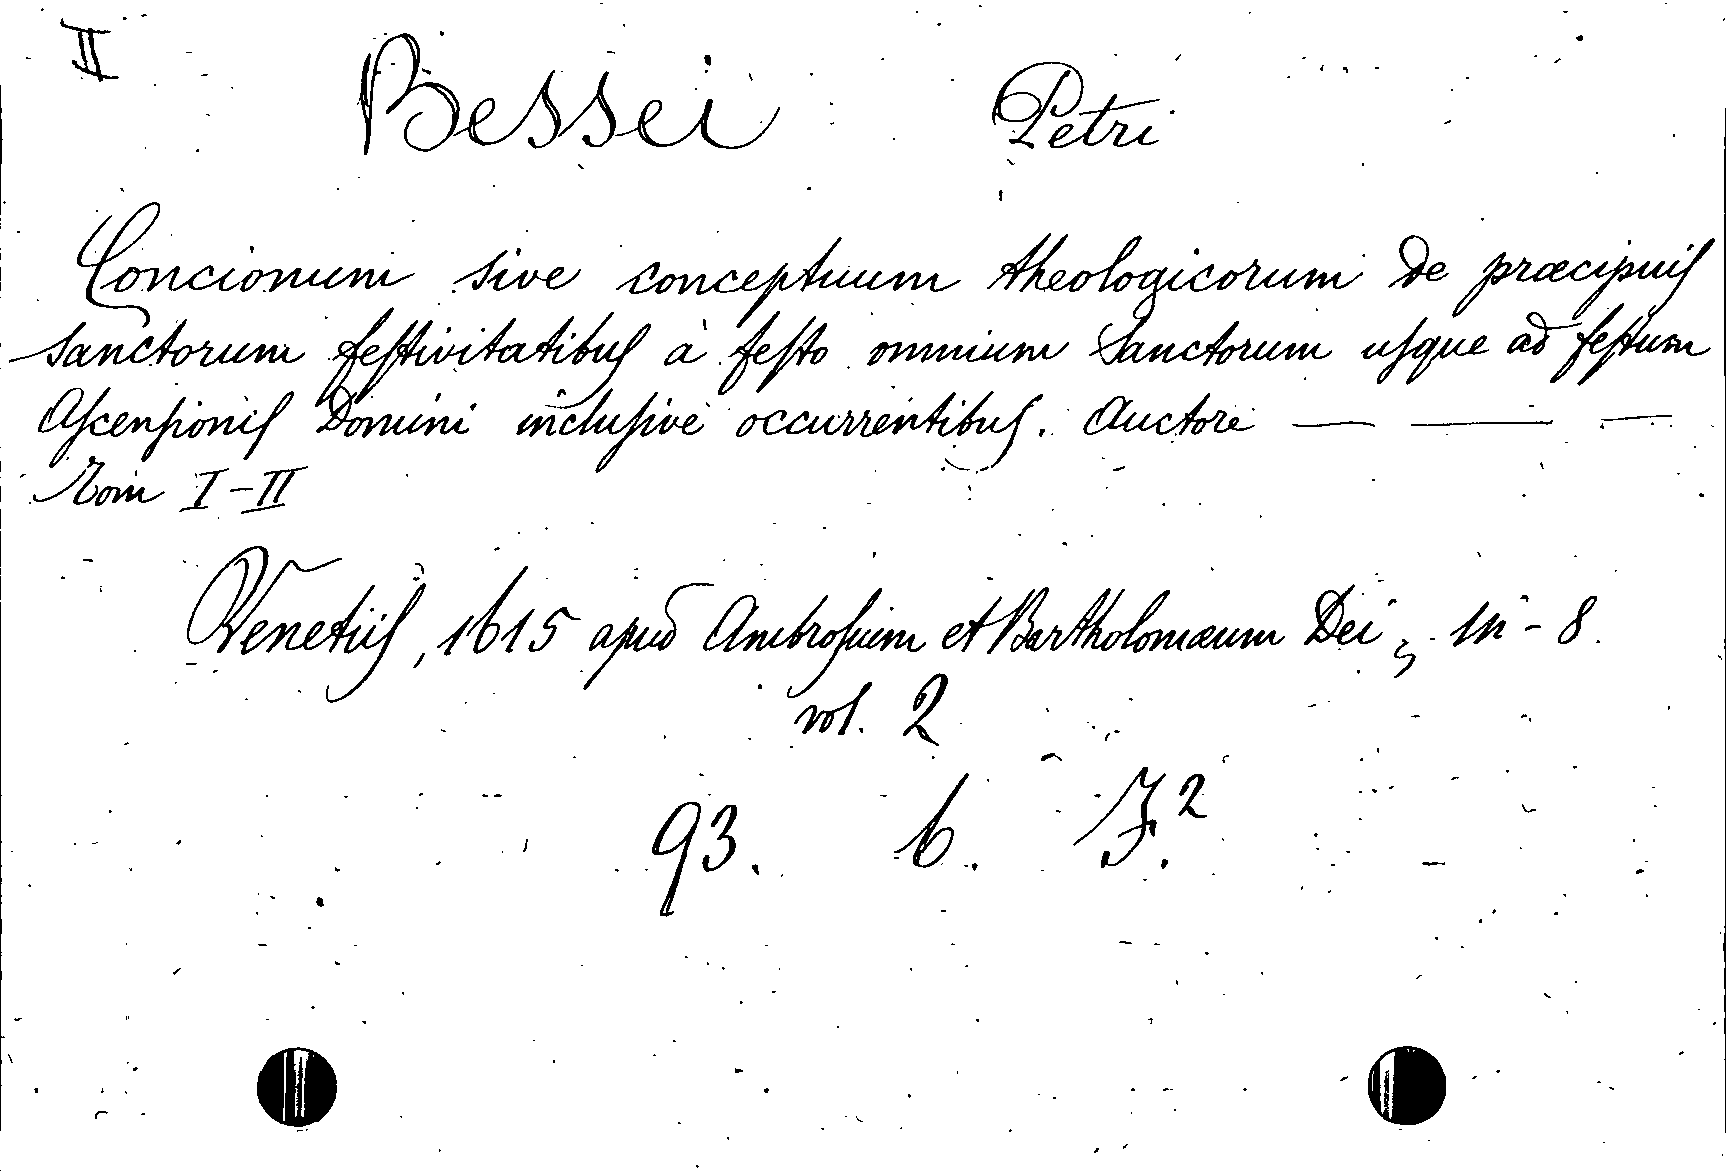 II
Bessei Petri
Concionum sive conceptuum theologicorum de præcipuis
sanctorum festivitatibus à festo omnium Sanctorum usque ad festum
Ascensionis Domini inclusivè occurrentibus. Auctore — — —
Tom I-II
Venetiis, 1615 apud Ambrosium et Bartholomæum Dei, in-8.
vol. 2
93. b. F.²